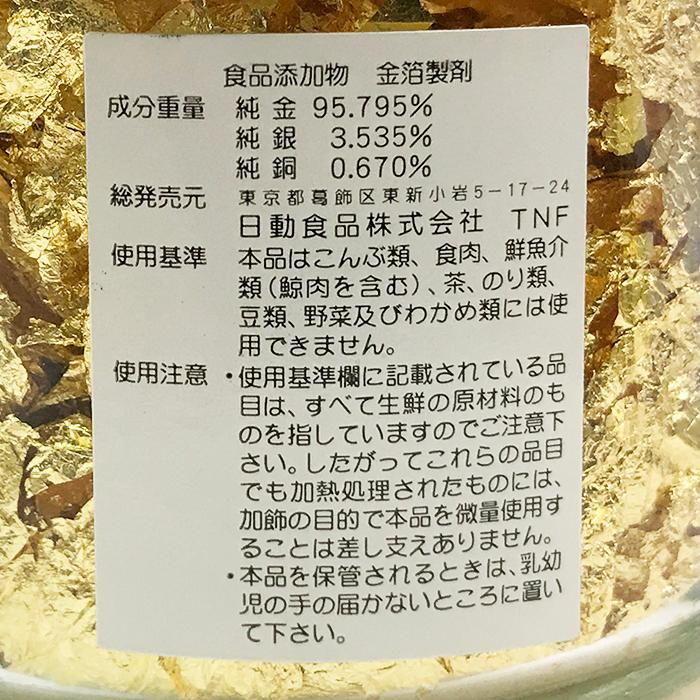 食品添加物 金箔製剤
成分重量 純金 95.795%
純銀 3.535%
純銅 0.670%
総発売元 東京都葛飾区東新小岩5-17-24
日動食品株式会社 TNF
使用基準 本品はこんぶ類、食肉、鮮魚介
類(鯨肉を含む)、茶、のり類、
豆類、野菜及びわかめ類には使
用できません。
使用注意 ・使用基準欄に記載されている品
目は、すべて生鮮の原材料のも
のを指していますのでご注意下
さい。したがってこれらの品目
でも加熱処理されたものには、
加飾の目的で本品を微量使用す
ることは差し支えありません。
・本品を保管されるときは、乳幼
児の手の届かないところに置い
て下さい。